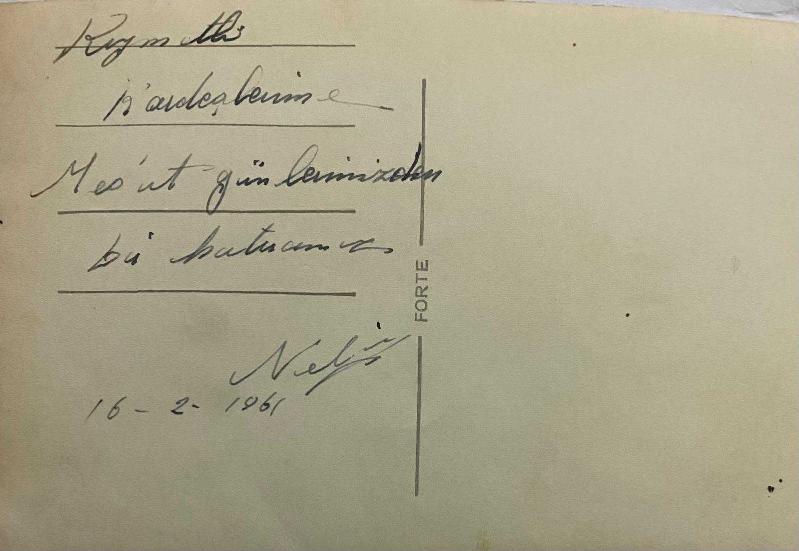 Kıymetli
Kardeşlerime
Mes'ut günlerimizden
bir hatıramız
16-2-1961
FORTE